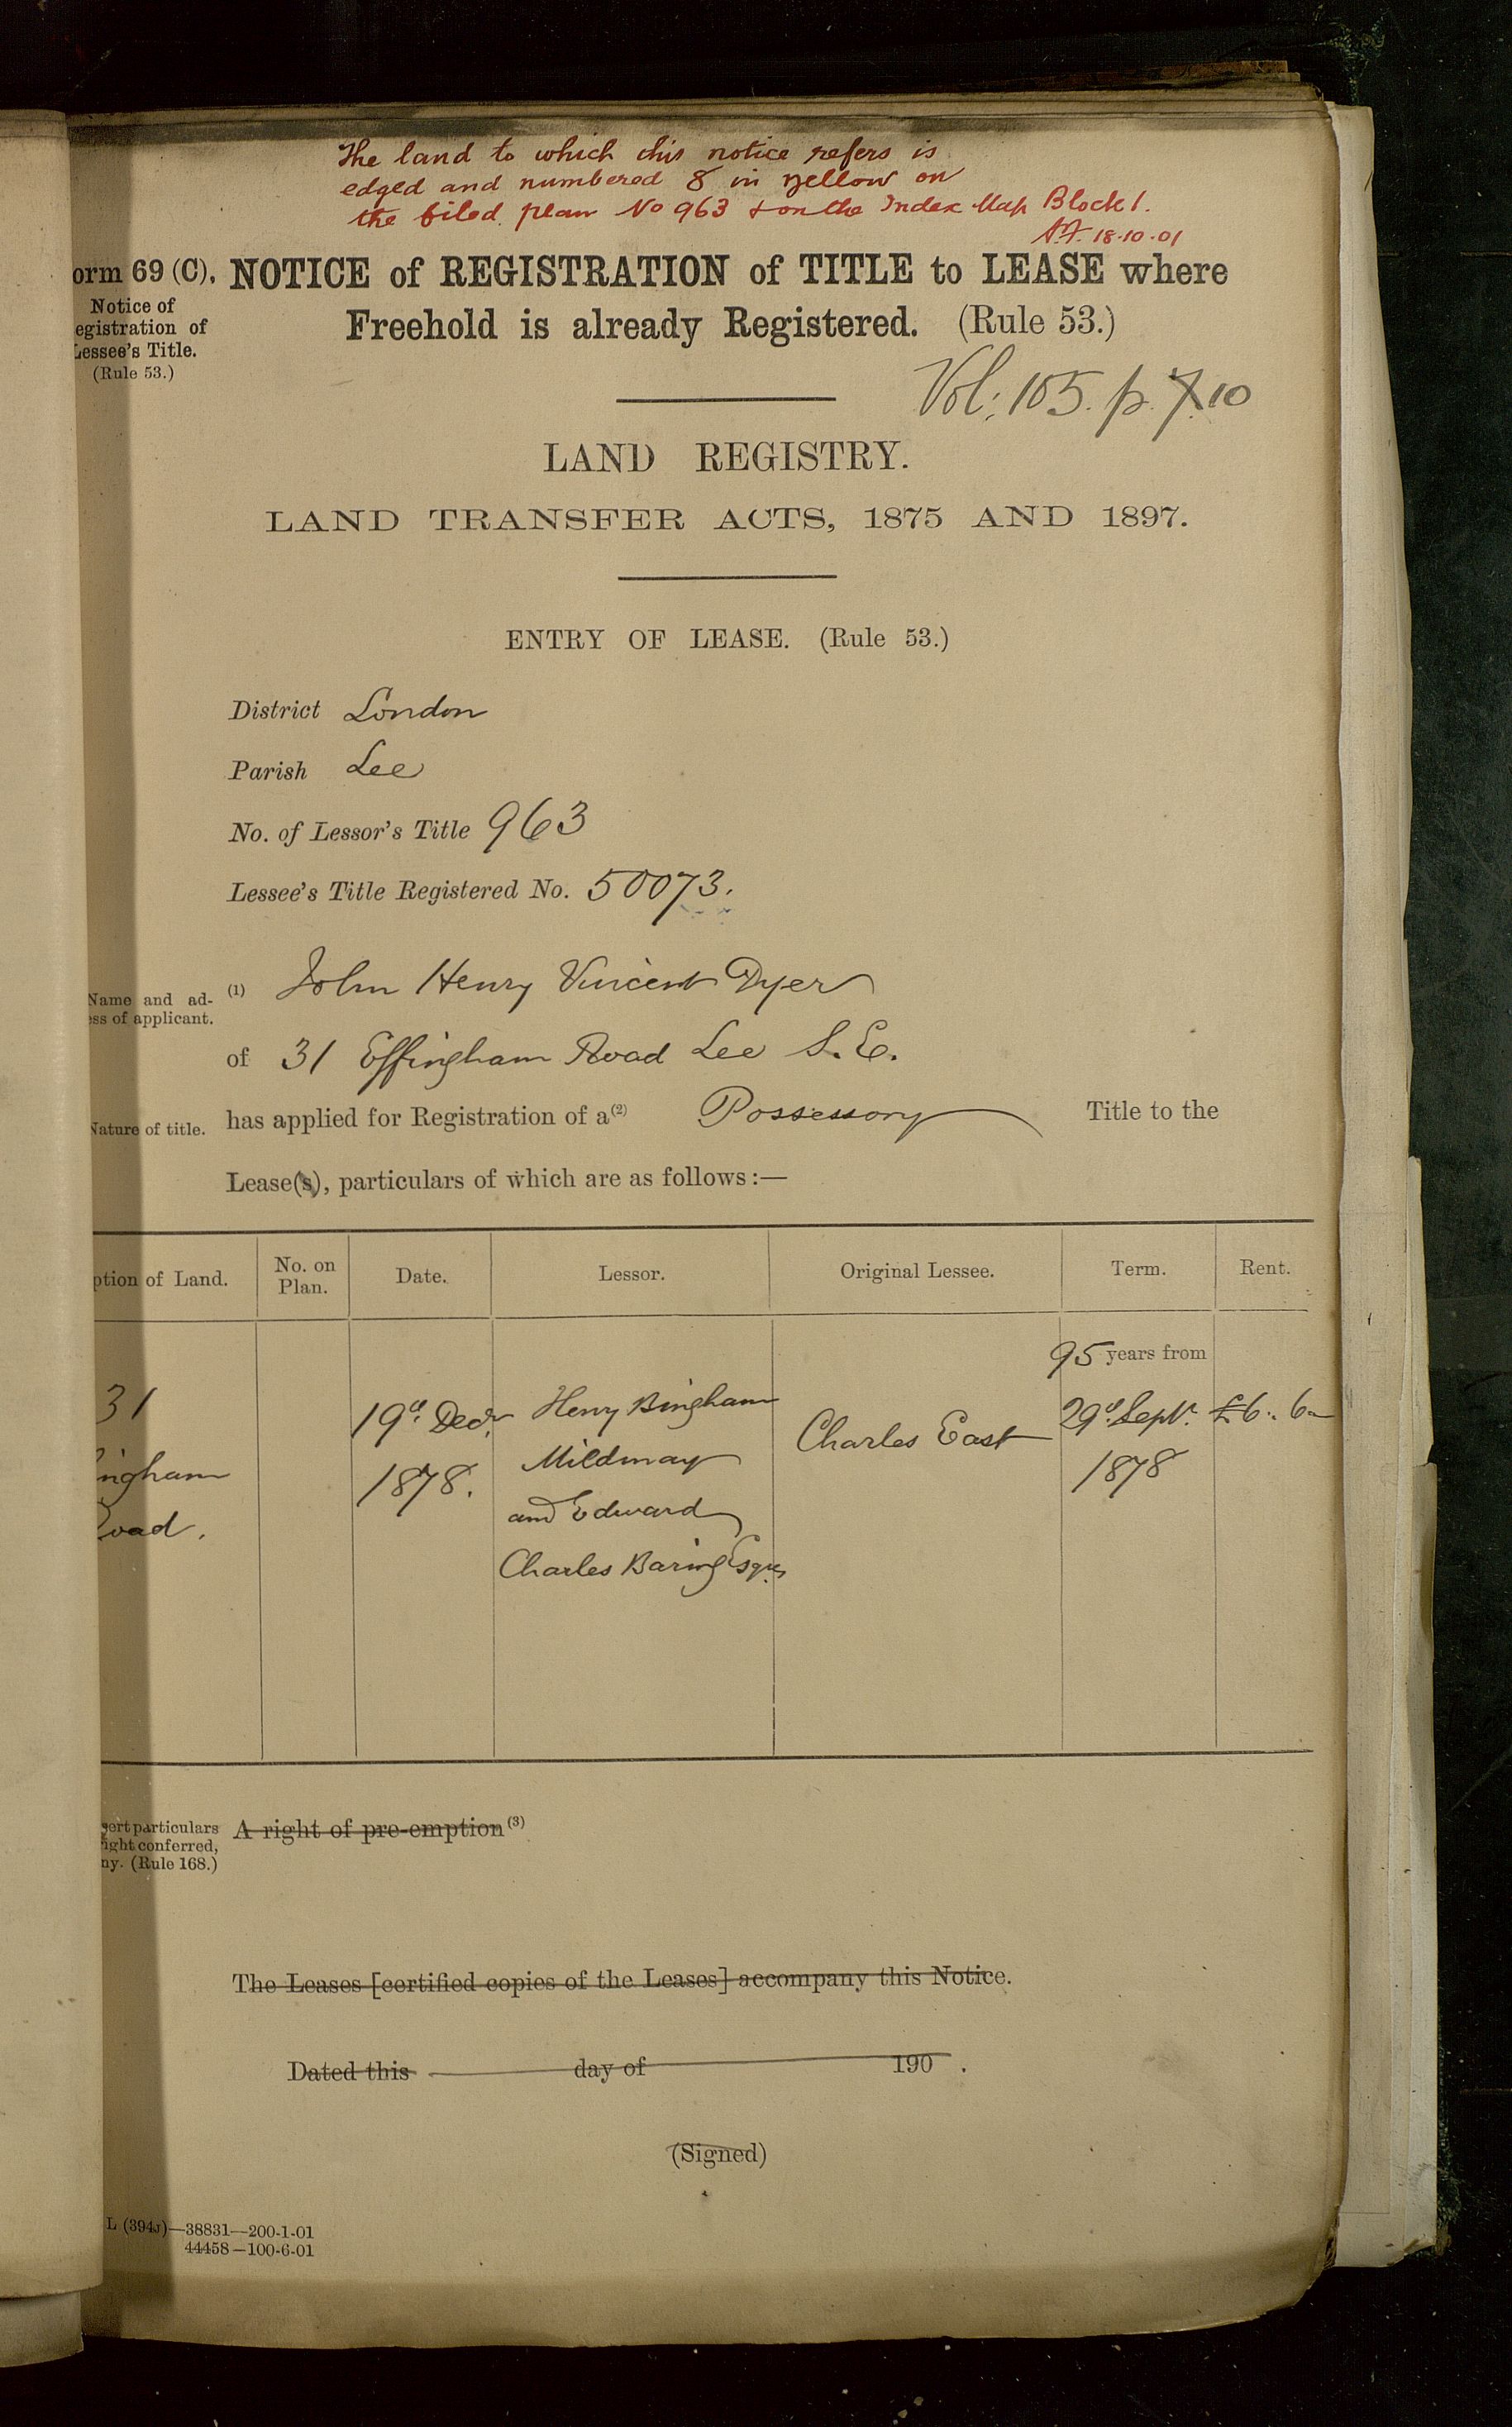 The land to which this notice refers is
edged and numbered 8 in yellow on
the filed plan No 963 & on the Index Map Block 1.
18.10.01
orm 69 (C).
Notice of
egistration of
Lessee's Title.
(Rule 53.)
NOTICE of REGISTRATION of TITLE to LEASE where
Freehold is already Registered. (Rule 53.)
Vol: 105. p. 7. 10
LAND REGISTRY.
LAND TRANSFER ACTS, 1875 AND 1897.
ENTRY OF LEASE. (Rule 53.)
District London
Parish Lee
No. of Lessor's Title 963
Lessee's Title Registered No. 50073.
Name and ad-
ess of applicant.
(1) John Henry Vincent Dyer
of 31 Effingham Road Lee S.E.
Nature of title.
has applied for Registration of a(2) Possessory Title to the
Lease(s), particulars of which are as follows:—
ption of Land. No. on Plan. Date. Lessor. Original Lessee. Term. Rent.
31
ingham
Road.
19th Decr
1878.
Henry Bingham
Mildmay
and Edward
Charles Baring Esqres
Charles East
95 years from
29th Septr
1878
£6.. 6 –
sert particulars
ight conferred,
ny. (Rule 168.)
A right of pre-emption (3)
The Leases [certified copies of the Leases] accompany this Notice.
Dated this day of 190 .
(Signed)
L (394J)—38831—200-1-01
44458—100-6-01